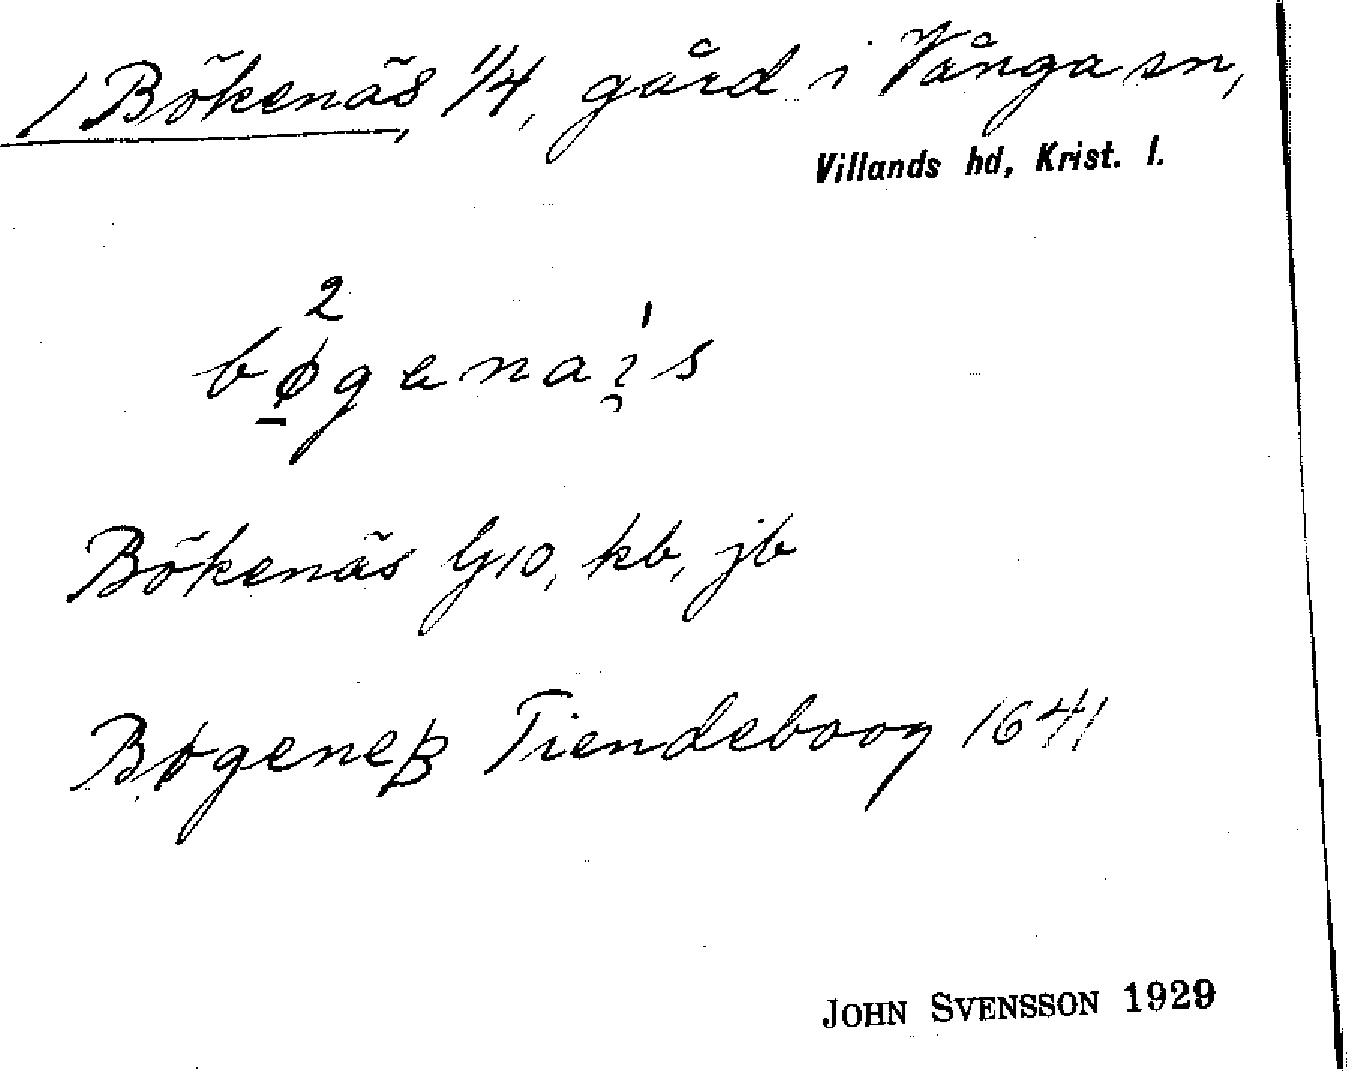 1 Bökenäs, 1/4, gård i Vånga sn,
Villands hd, Krist. l.
2
bøgena s
Bökenäs G10, kb, jb
Bøgeneß Tiendeboog 1641
JOHN SVENSSON 1929